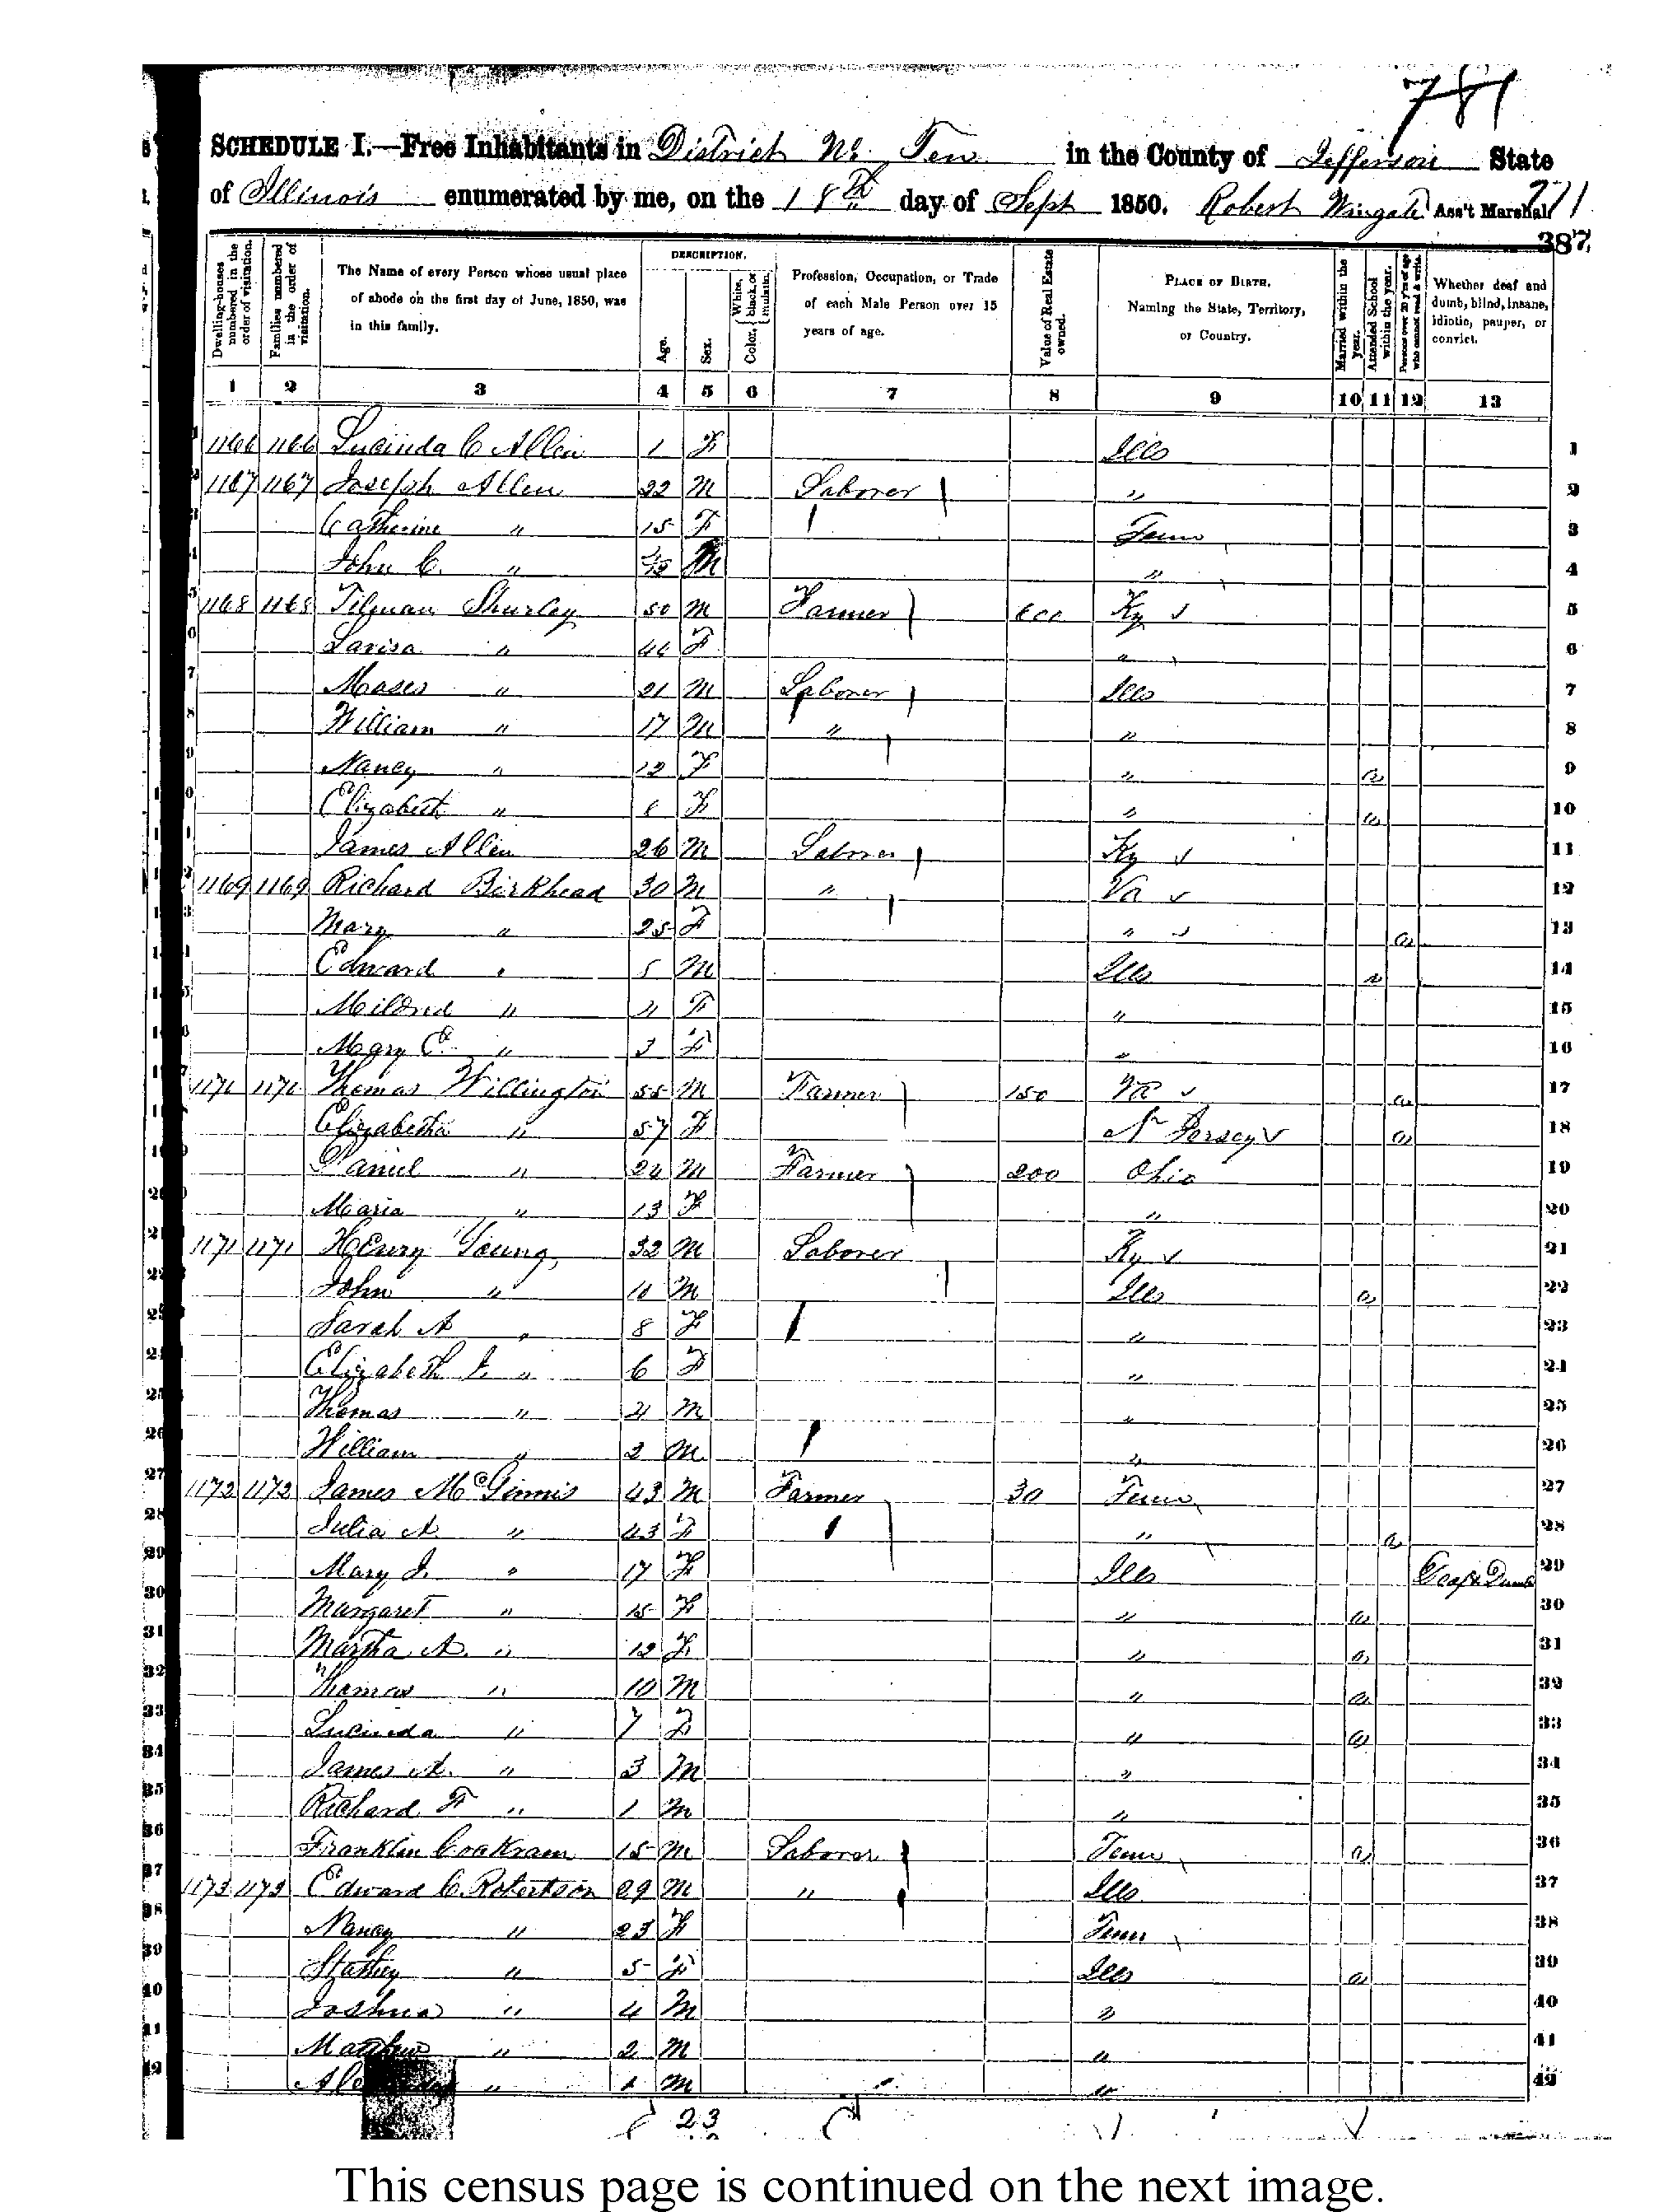 781
SCHEDULE I.—Free Inhabitants in District No. Ten in the County of Jefferson State
of Illinois enumerated by me, on the 18th day of Sept 1850. Robert Wingate Ass't Marshal
771
387
Dwelling-houses numbered in the order of visitation.
Families numbered in the order of visitation.
The Name of every Person whose usual place of abode on the first day of June, 1850, was in this family.
DESCRIPTION.
Age.
Sex.
Color, { White, black, or mulatto.
Profession, Occupation, or Trade of each Male Person over 15 years of age.
Value of Real Estate owned.
PLACE OF BIRTH. Naming the State, Territory, or Country.
Married within the year.
Attended School within the year.
Persons over 20 y'rs of age who cannot read & write.
Whether deaf and dumb, blind, insane, idiotic, pauper, or convict.
1 2 3 4 5 6 7 8 9 10 11 12 13
1166 1166 Lucinda C Allen 1 F Ills 1
1167 1167 Joseph Allen 22 M Laborer " 2
Catherine " 15 F Tenn 3
John C. " M " 4
1168 1168 Tilman Shurley 50 M Farmer 600 Ky 5
Lavisa " 46 F " 6
Moses " 21 M Laborer Ills 7
William " 17 M " " 8
Nancy " 12 F " 9
Elizabeth " 8 F " 10
James Allen 26 M Laborer Ky 11
1169 1169 Richard Birkhead 30 M " Va 12
Mary " 25 F " 13
Edward " 5 M Ills 14
Mildred " 4 F " 15
Mary E. " 3 F " 16
1170 1170 Thomas Willington 55 M Farmer 150 Va 17
Elizabetha " 57 F N Jersey 18
Daniel " 24 M Farmer 200 Ohio 19
Maria " 13 F " 20
1171 1171 Henry Young 32 M Laborer Ky 21
John " 10 M Ills 22
Sarah A " 8 F " 23
Elizabeth J. " 6 F " 24
Thomas " 4 M " 25
William " 2 M " 26
1172 1172 James McGinnis 43 M Farmer 30 Tenn 27
Julia A " 43 F " 28
Mary J. " 17 F Ills Deaf & Dumb 29
Margaret " 15 F " 30
Martha A. " 12 F " 31
Thomas " 10 M " 32
Lucinda " 7 F " 33
James A. " 3 M " 34
Richard F " 1 M " 35
Franklin Coakram 15 M Laborer Tenn 36
1173 1173 Edward C. Robertson 29 M " Ills 37
Nancy " 23 F Tenn 38
" 5 F Ills 39
Joshua " 4 M " 40
Matthew " 2 M " 41
" 1 M " 42
23
This census page is continued on the next image.